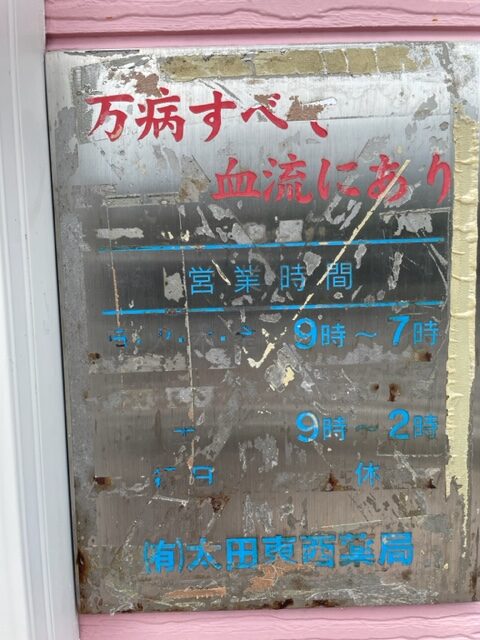 万病すべて
血流にあり
営業時間
9時〜7時
9時〜2時
日 休
(有)太田東西薬局